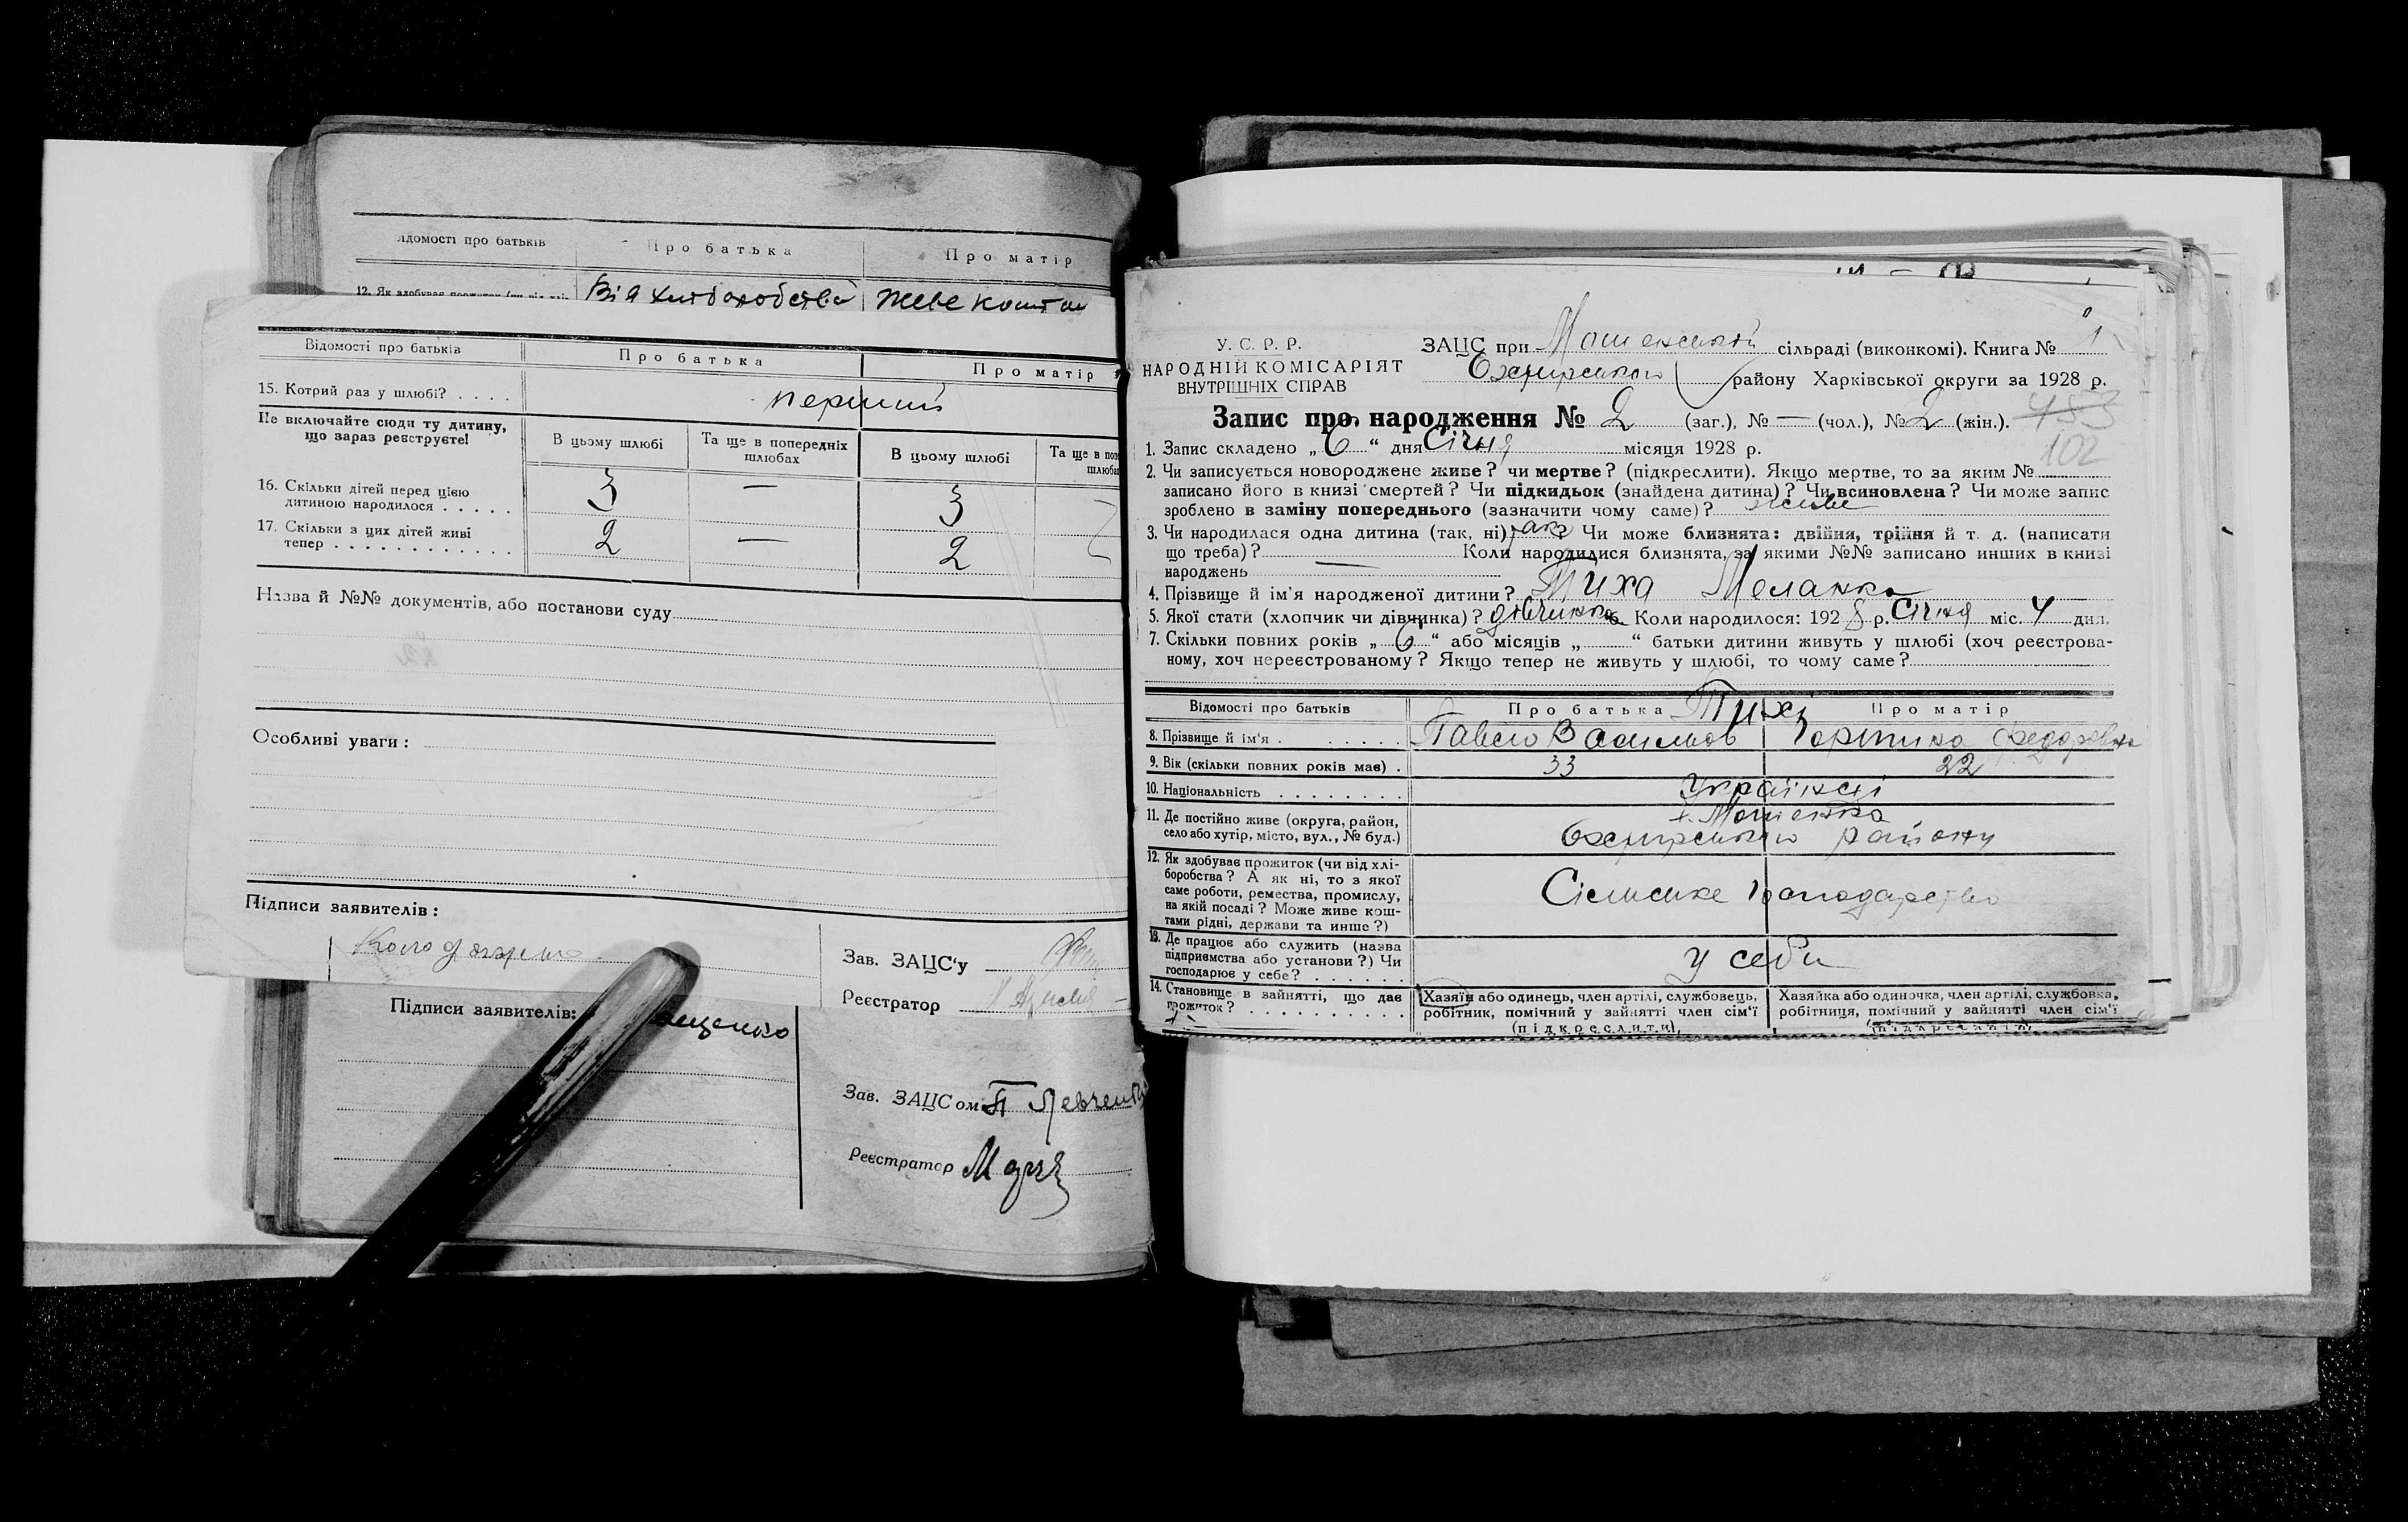 Відомості про батьків
Про батька
Про матір
Від хліборобства
живе кошт
Відомості про батьків
Про батька
Про матір
15. Котрий раз у шлюбі? . . . .
перший
Не включайте сюди ту дитину,
що зараз реєструєте!
В цьому шлюбі
Та ще в попередніх
шлюбах
В цьому шлюбі
Та ще в
шлюба
16. Скільки дітей перед цією
дитиною народилося . . . . .
3 — 3
17. Скільки з цих дітей живі
тепер . . . . . . . . . . . .
2 — 2
Назва й №№ документів, або постанови суду
Особливі уваги:
Підписи заявителів:
Зав. ЗАЦС'у
Реєстратор
Підписи заявителів:
ащенко
Зав. ЗАЦСом П Левченко
Реєстратор
У. С. Р. Р.
НАРОДНІЙ КОМІСАРІЯТ
ВНУТРІШНІХ СПРАВ
ЗАЦС при Мошенській сільраді (виконкомі). Книга № 1
Охтирського району Харківської округи за 1928 р.
Запис про народження № 2 (заг.), № — (чол.), № 2 (жін.). 453
102
1. Запис складено „6" дня Січня місяця 1928 р.
2. Чи записується новороджене живе? чи мертве? (підкреслити). Якщо мертве, то за яким №
записано його в книзі смертей? Чи підкидьок (знайдена дитина)? Чи всиновлена? Чи може запис
зроблено в заміну попереднього (зазначити чому саме)? живе
3. Чи народилася одна дитина (так, ні) так? Чи може близнята: двійня, трійня й т. д. (написати
що треба)? Коли народилися близнята, за якими №№ записано инших в книзі
народжень —
4. Прізвище й ім'я народженої дитини? Тиха Меланка
5. Якої стати (хлопчик чи дівчинка)? дівчинка 6. Коли народилося: 1928 р. Січня міс. 4 дня.
7. Скільки повних років „6" або місяців „ " батьки дитини живуть у шлюбі (хоч реєстрова-
ному, хоч нереєстрованому? Якщо тепер не живуть у шлюбі, то чому саме?
Відомості про батьків
Про батька
Про матір
Тихі
8. Прізвище й ім'я . . . . . . .
Павло Васильов
Горпина Федоровна
9. Вік (скільки повних років має) .
33
22
10. Національність . . . . . . . .
Українці
11. Де постійно живе (округа, район,
село або хутір, місто, вул., № буд.)
х. Мошенка
Охтирського району
12. Як здобуває прожиток (чи від хлі-
боробства? А як ні, то з якої
саме роботи, ремества, промислу,
на якій посаді? Може живе кош-
тами рідні, держави та инше?)
Сільське господарство
13. Де працює або служить (назва
підприємства або установи?) Чи
господарює у себе? . . . . . .
у себе
14. Становище в зайнятті, що дає
прожиток? . . . . . . . . . .
Хазяїн або одинець, член артілі, службовець,
робітник, помічний у зайнятті член сім'ї
(підкреслити)
Хазяйка або одиночка, член артілі, службовка,
робітниця, помічний у зайнятті член сім'ї
(підкреслити)